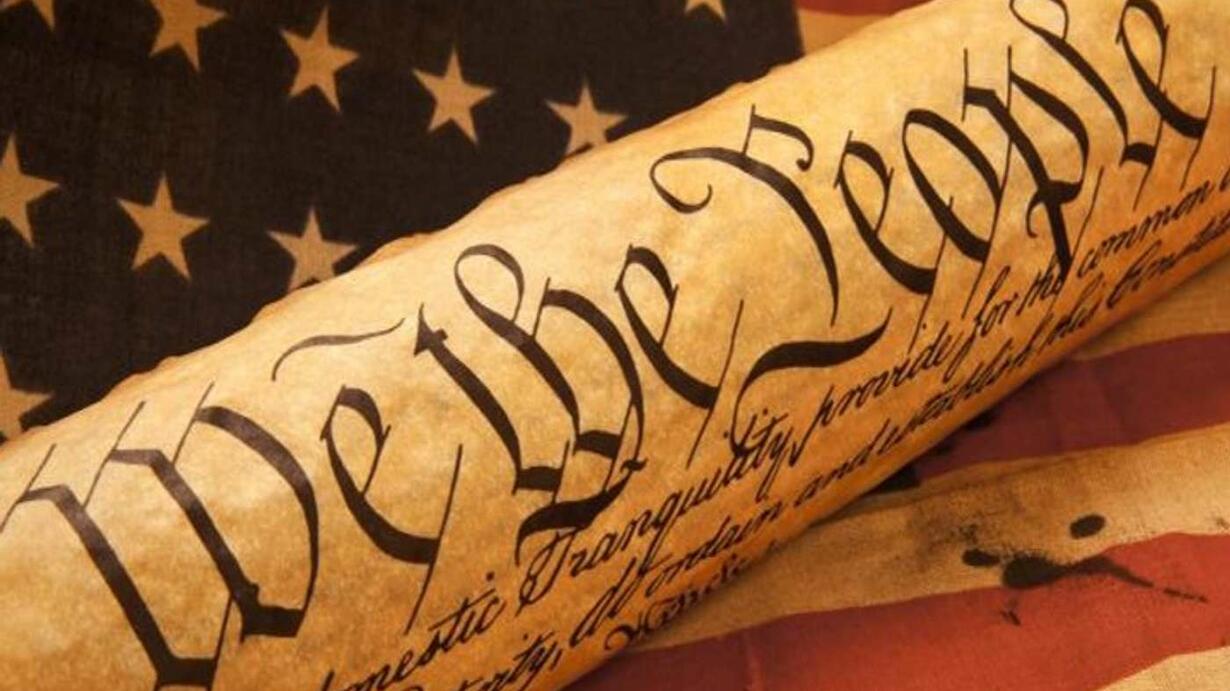 We the People
omestic Tranquility, provide for the common
terity, do ordain and establish this Const